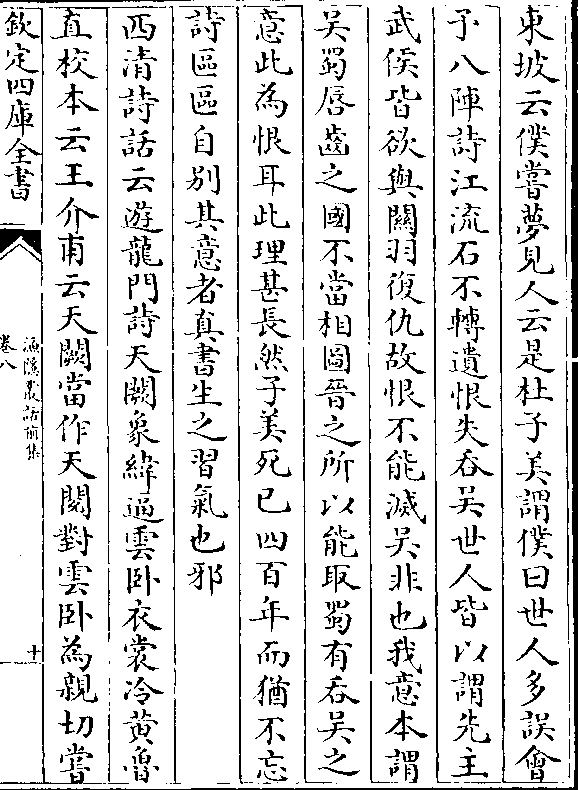 東坡云僕嘗夢見人云是杜子美謂僕曰世人多誤會
予八陣詩江流石不轉遺恨失吞吴世人皆以謂先主
武侯皆欲與關羽復仇故恨不能滅吴非也我意本謂
吴蜀唇齒之國不當相圖晉之所以能取蜀有吞吴之
意此為恨耳此理甚長然子美死已四百年而猶不忘
詩區區自别其意者真書生之習氣也邪
西清詩話云遊龍門詩天闕象緯逼雲卧衣裳冷黄魯
直校本云王介甫云天闕當作天閲對雲卧為親切嘗
欽定四庫全書
漁隱叢話前集
卷八
十